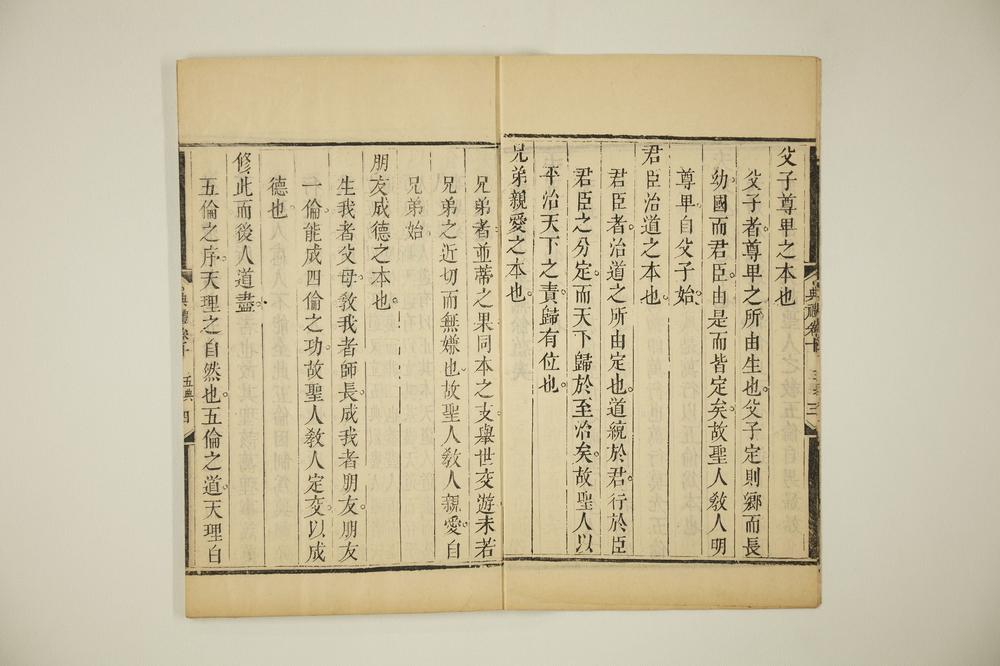 父子尊卑之本也
父子者尊卑之所由生也父子定則鄉而長
幼國而君臣由是而皆定矣故聖人教人明
尊卑自父子始
君臣治道之本也
君臣者治道之所由定也道統於君行於臣
君臣之分定而天下歸於至治矣故聖人以
平治天下之責歸有位也
兄弟親愛之本也
兄弟者並蒂之果同本之支舉世交遊未若
兄弟之近切而無嫌也故聖人教人親愛自
兄弟始
朋友成德之本也
生我者父母教我者師長成我者朋友朋友
一倫能成四倫之功故聖人教人定交以成
德也
修此而後人道盡
五倫之序天理之自然也五倫之道天理自
典禮卷十 五典 四